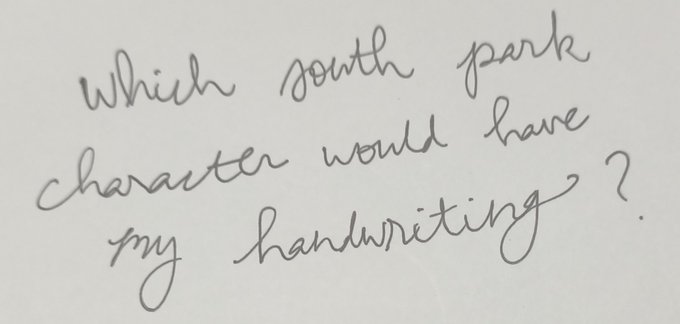 Which south park
character would have
my handwriting?